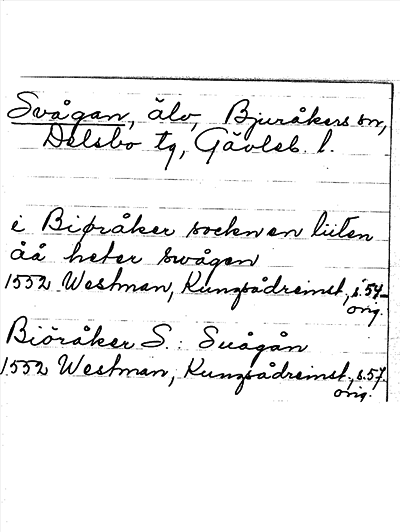 Svågan, älv, Bjuråkers sn,
Delsbo tg, Gävleb. l.
i Biöråker sockn en liiten
åå heter swågen
1552 Westman, Kungsådreinst., s. 54
orig.
Biöråker S.: Suågån
1552 Westman, Kungsådreinst., s. 57.
orig.